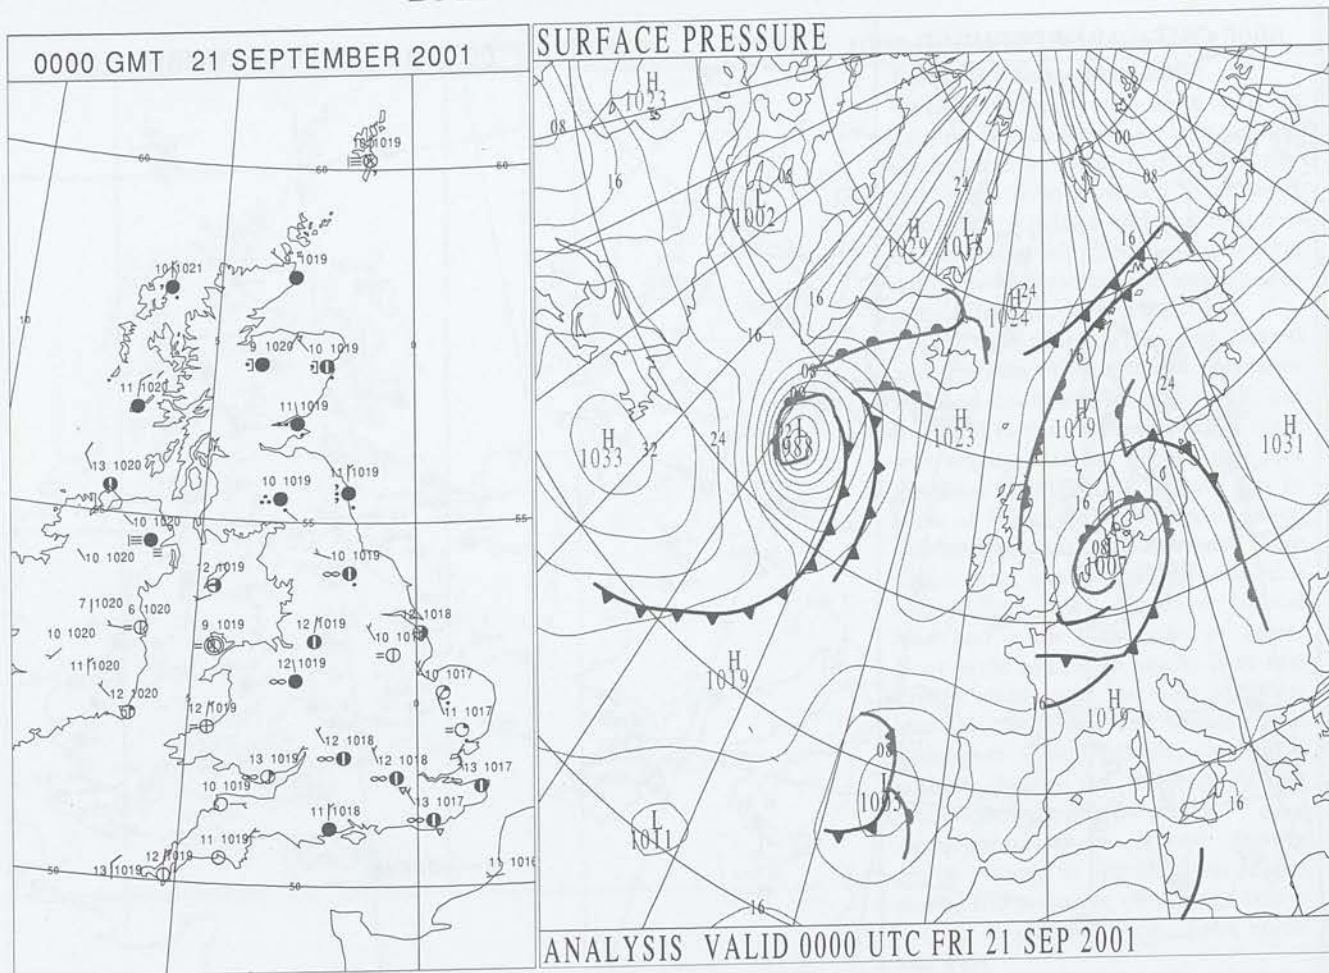 0000 GMT 21 SEPTEMBER 2001
10 1019
60
60
60
10 1021
1019
10
5
0
9 1020
10 1019
11 1020
11 1019
13 1020
10 1019
11 1019
10 1020
55
55
10 1020
10 1019
12 1019
7 1020
6 1020
12 1018
10 1020
9 1019
12 1019
11 1020
12 1019
10 1017
12 1020
12 1019
0
11 1017
12 1018
13 1019
12 1018
13 1017
10 1019
11 1018
13 1017
11 1019
12 1019
13 1019
50
50
11 1016
SURFACE PRESSURE
H
1023
08
16
08
L
1002
24
H
1029
L
1018
00
08
16
16
24
H
1024
16
16
08
H
1033
32
24
L
H
1023
H
1019
24
H
1031
16
08
L
1007
H
1019
16
H
1019
08
L
1005
L
1011
16
16
ANALYSIS VALID 0000 UTC FRI 21 SEP 2001